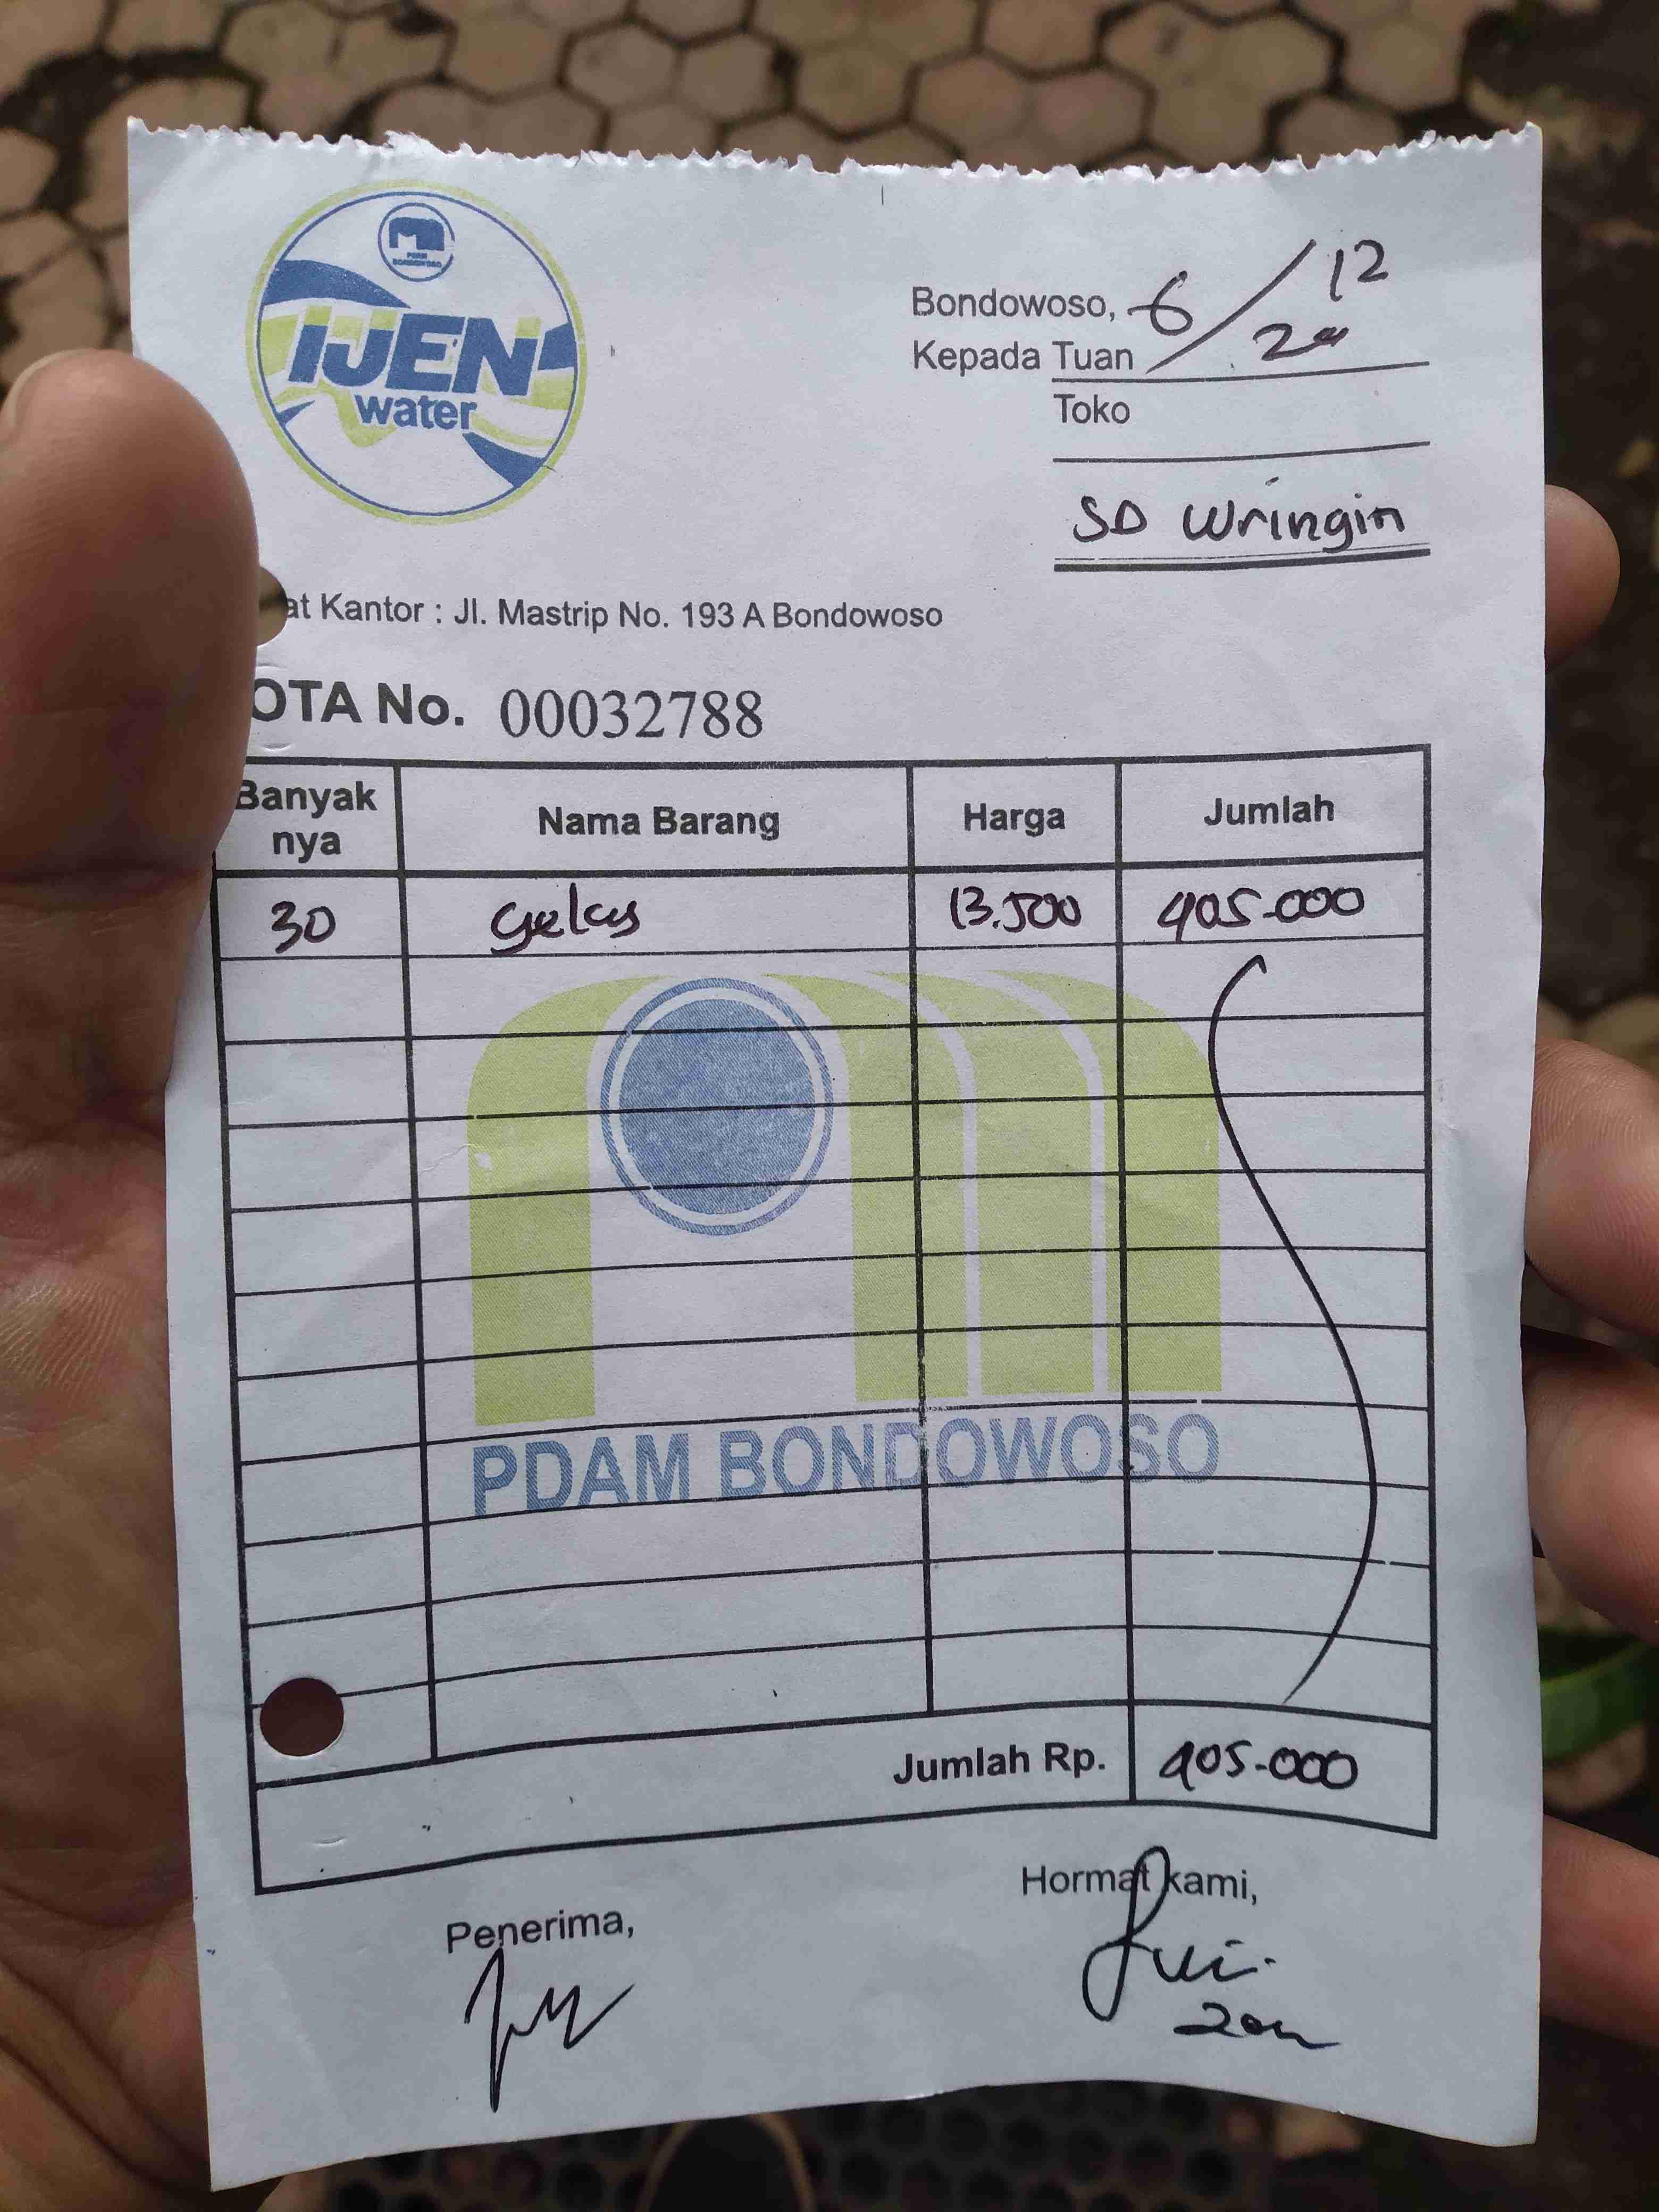 PDAM
BONDOWOSO
IJEN
water
Bondowoso, 6/12
Kepada Tuan
Toko
SD Wringin
at Kantor : Jl. Mastrip No. 193 A Bondowoso
OTA No. 00032788
Banyak nya Nama Barang Harga Jumlah
30 gelas 13.500 405.000
PDAM BONDOWOSO
Jumlah Rp. 405.000
Penerima, Hormat kami,